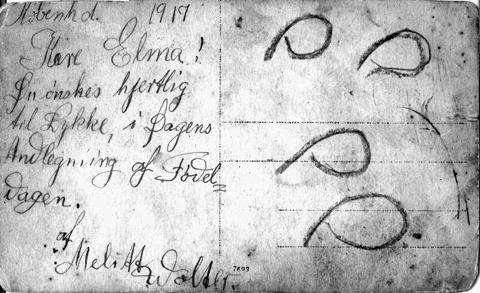 Københd. 1917
Kære Elma!
Du ønskes hjertlig
til Lykke, i Dagens
Andlegning af Fødel=
dagen.
af
Melitt Wolter.
7893